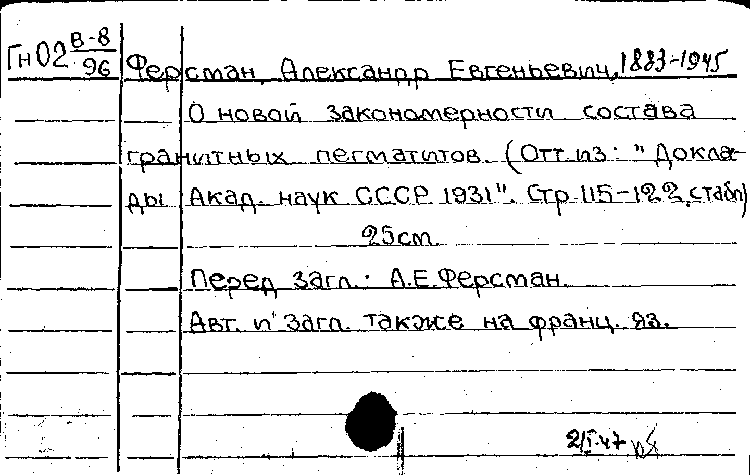 Гн02 В-8/96
Ферсман, Александр Евгеньевич, 1883-1945
О новой закономерности состава
гранитных пегматитов. (Отт. из: "Докла-
ды Акад. наук СССР 1931". Стр. 115-122, с табл)
25cm.
Перед загл.: А.Е.Ферсман.
Авт. и загл. также на франц. яз.
2/I.47